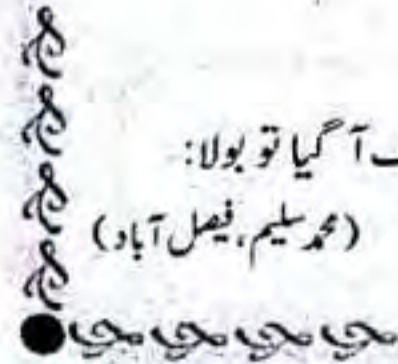 آ گیا تو بولا:
(محمد سلیم، فیصل آباد)